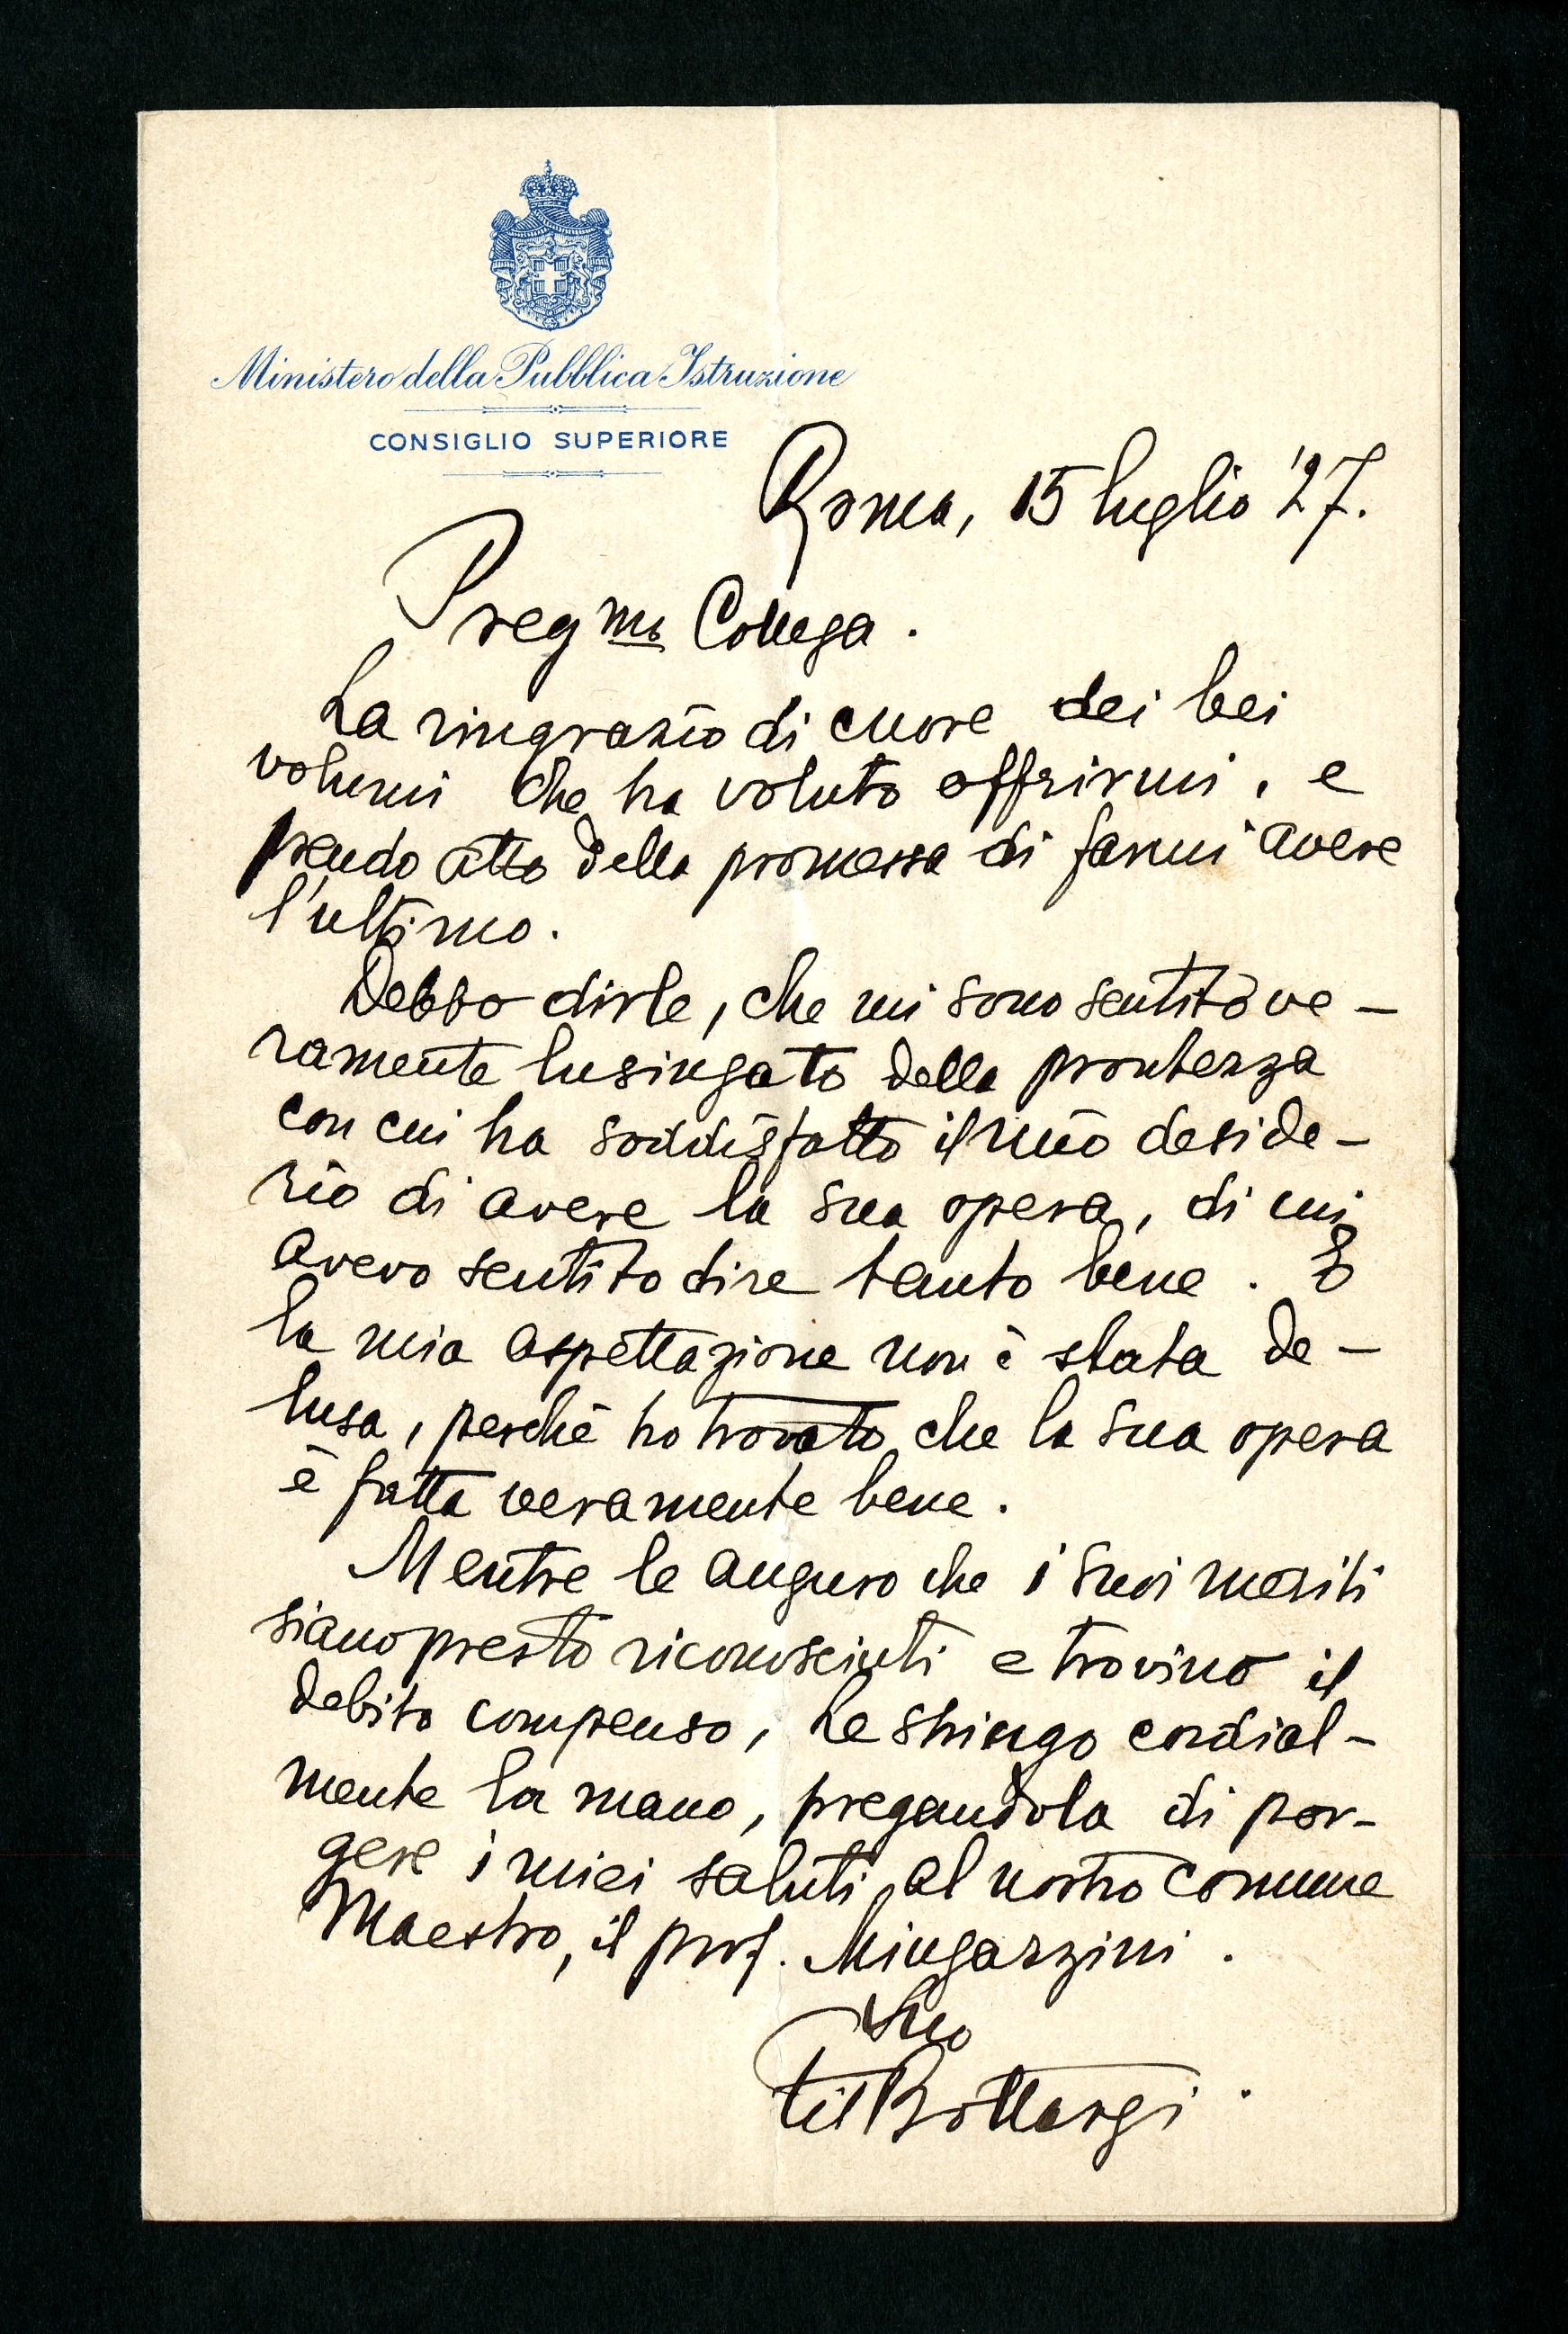 Ministero della Pubblica Istruzione
CONSIGLIO SUPERIORE
Roma, 15 luglio '27.
Preg mo Collega.
La ringrazio di cuore dei bei
volumi che ha voluto offrirmi, e
prendo atto della promessa di farmi avere
l'ultimo.
Debbo dirle, che mi sono sentito ve-
ramente lusingato della prontezza
con cui ha soddisfatto il mio deside-
rio di avere la sua opera, di cui
avevo sentito dire tanto bene. E
la mia aspettazione non è stata de-
lusa, perchè ho trovato che la sua opera
è fatta veramente bene.
Mentre le auguro che i suoi meriti
siano presto riconosciuti e trovino il
debito compenso, Le stringo cordial-
mente la mano, pregandola di por-
gere i miei saluti al nostro comune
Maestro, il prof. Mingazzini.
Suo
Fil Bottazzi